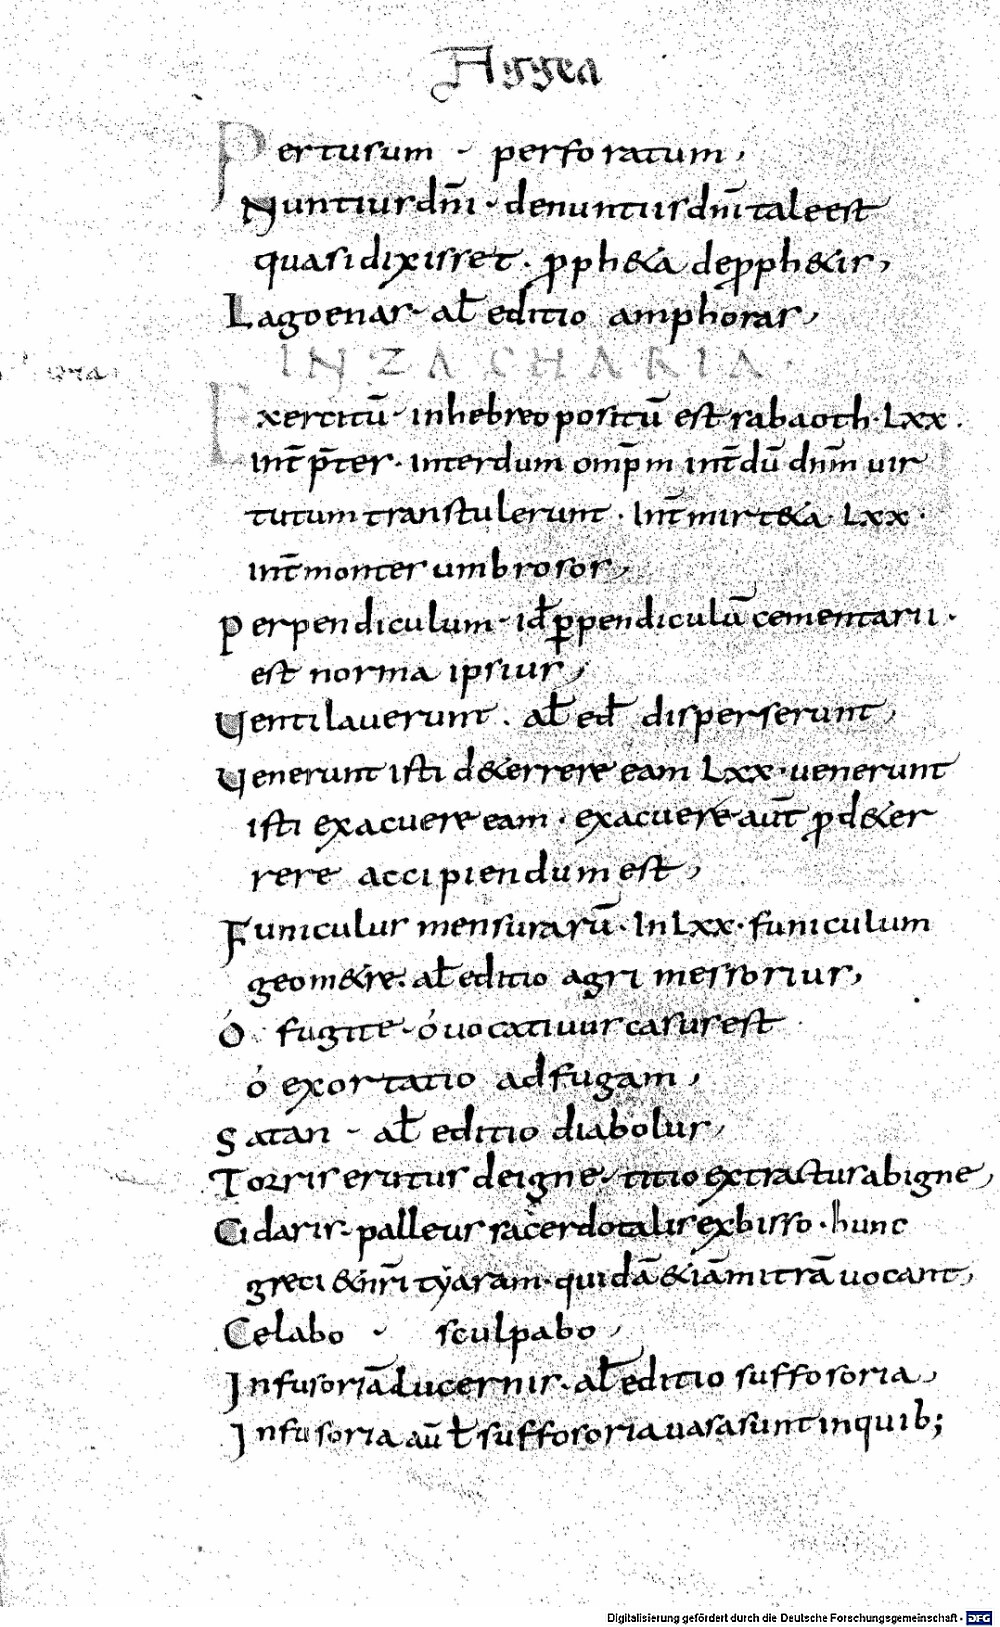 Aggea
Pertusum - perforatum,
Nuntius dn̄i · denuntiis dn̄i tale est
quasi dixisset · ꝓph&a de ꝓph&is,
Lagoenas - al̄ editio amphoras,
IN ZACHARIA ·
Exercitū - in hebreo positū est sabaoth · Lxx ·
int̄ p̄ter · interdum omp̄m int̄dū dnm̄ uir
tutum transtulerunt · Int̄ mirt&a Lxx ·
int̄ montes umbrosos,
Perpendiculum - id̄ ꝑpendiculū cementarii ·
est norma ipsius,
Uentilauerunt · al̄ ed̄ disperserunt,
Uenerunt isti d&errere eam Lxx · uenerunt
isti exacuere eam · exacuere aut̄ ꝓ d&er
rere accipiendum est,
Funiculus mensurarū · In Lxx · funiculum
geom&re · al̄ editio agri messorius,
ó fugite - ó uocatiuus casus est
ó exortatio ad fugam,
Satan - al̄ editio diabolus,
Torris erutus de igne · titio extractus ab igne,
Cidaris - palleus sacerdotalis ex bisso · hunc
greci & nr̄i tẏaram · quidā &iā mitrā uocant,
Celabo - sculpabo,
Infusoriā lucernis · al̄ editio suffosoria,
Infusoria aū ł suffosoria uasa sunt in quib;
Digitalisierung gefördert durch die Deutsche Forschungsgemeinschaft - DFG